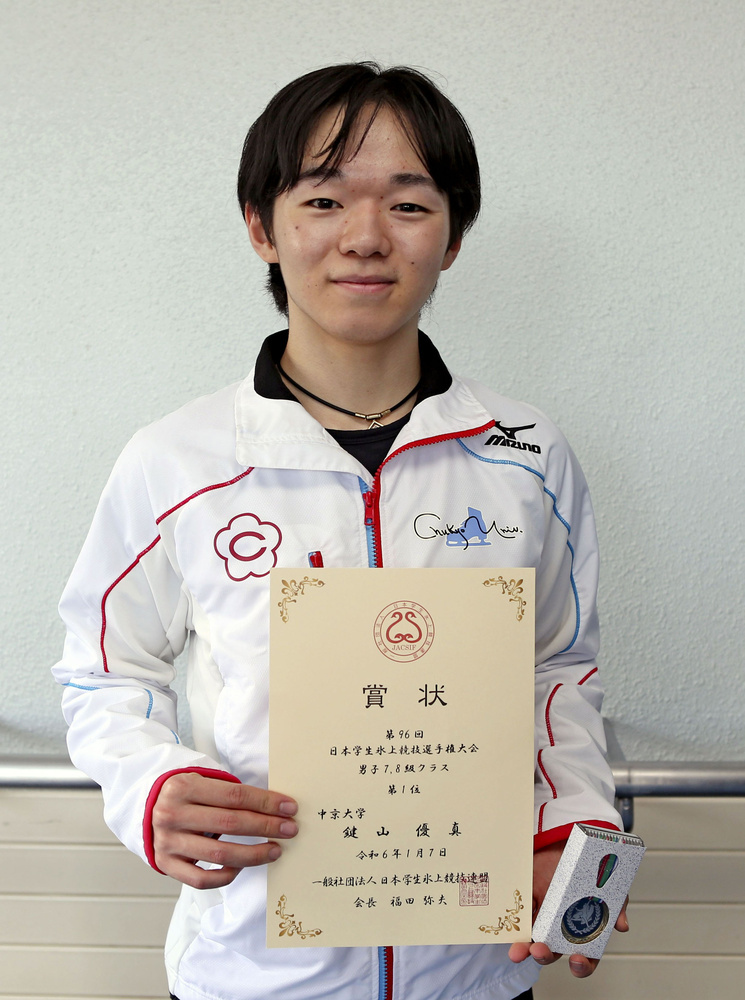 MIZUNO
C
Chukyo Univ.
JACSIF
賞状
第96回
日本学生氷上競技選手権大会
男子7,8級クラス
第1位
中京大学
鍵山 優真
令和6年1月7日
一般社団法人日本学生氷上競技連盟
会長 福田 弥夫